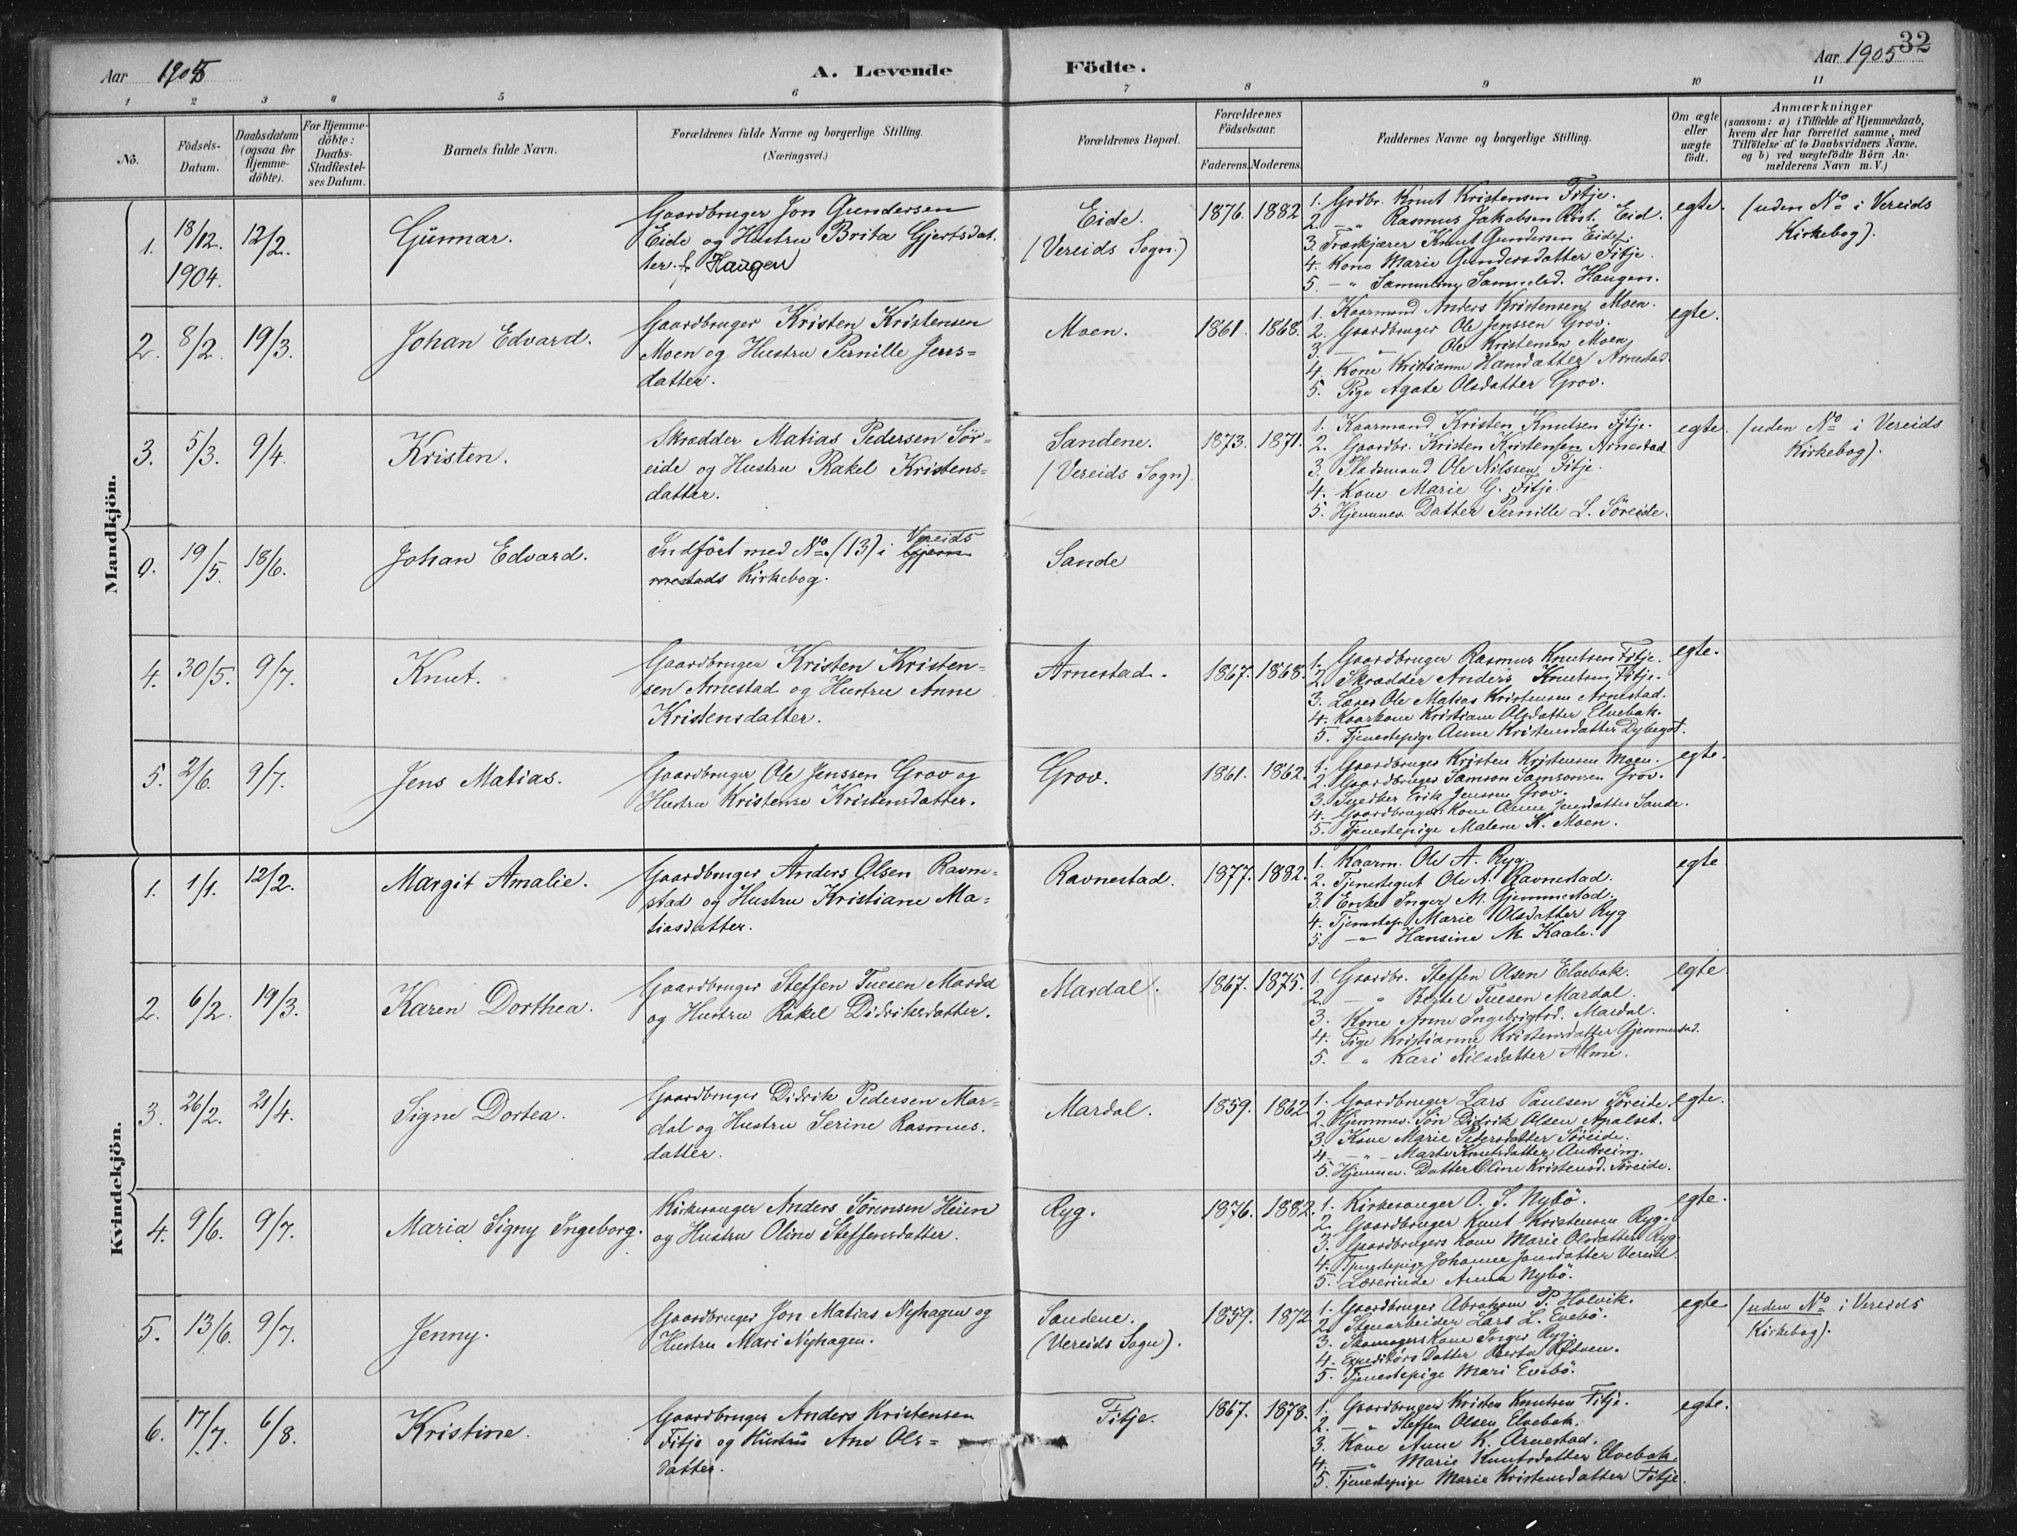 32
Aar 1905
A. Levende Födte.
Aar 1905
1 2 3 4 5 6 7 8 9 10 11
No.
Födsels-
Datum.
Daabsdatum
(ogsaa for
Hjemme-
döbte).
For Hjemme-
döbte:
Daabs-
Stadfæstel-
ses Datum.
Barnets fulde Navn.
Forældrenes fulde Navne og borgerlige Stilling.
(Næringsvei.)
Forældrenes Bopæl.
Forældrenes
Födselsaar.
Faderens. Moderens.
Faddernes Navne og borgerlige Stilling.
Om ægte
eller
uægte
födt.
Anmærkninger
(saasom: a) i Tilfælde af Hjemmedaab,
hvem der har forrettet samme, med
Tilföielse af to Daabsvidners Navne,
og b) ved uægtefödte Börn An-
melderens Navn m. V.)
Mandkjön.
1. 18/12. 1904. 12/2. Gunnar.
Gaardbruger Jon Gundersen
Eide og Hustru Brita Gjertsdat-
ter. f. Haugen
Eide.
(Vereids Sogn)
1876. 1882
1. Grdbr. Knut Kristensen Fitje.
2. -"- Rasmus Jakobsen Rist. Eid.
3. Forkjærer Knut Gundersen Eide
4. Kone Marie Gundersdatter Fitje.
5. -"- Sammeline Sammelsd. Haugen.
egte.
(uden No i Vereids
Kirkebog).
2. 8/2. 19/3. Johan Edvard.
Gaardbruger Kristen Kristensen
Moen og Hustru Pernille Jens-
datter.
Moen.
1861. 1868.
1. Kaarmand Anders Kristensen Moen.
2. Gaardbruger Ole Jenssen Grov.
3. -"- Ole Kristensen Moen
4. Kone Kristianne Hansdatter Arnestad.
5. Pige Agate Olsdatter Grov.
egte.
3. 5/3. 9/4. Kristen.
Skrædder Matias Pedersen Sör-
eide og Hustru Rakel Kristens-
datter.
Sandene.
(Vereids Sogn).
1873. 1871.
1. Kaarmand Kristen Knutsen Fitje.
2. Gaardbr. Kristen Kristensen Arnestad
3. Pladsmand Ole Nilssen Fitje.
4. Kone Marie G. Fitje.
5. Hjemmev. Datter Pernille L. Söreide.
egte.
(uden No i Vereids
Kirkebog).
0. 19/5. 18/6. Johan Edvard.
Indfört med No. (13) i Vereids Gjem-
mestads Kirkebog.
Sande
4. 30/5. 9/7. Knut.
Gaardbruger Kristen Kristen-
sen Arnestad og Hustru Anne
Kristensdatter.
Arnestad.
1867. 1868.
1. Gaardbruger Rasmus Knutsen Fitje.
2. Skrædder Anders Knutsen Fitje.
3. Lærer Ole Matias Kristensen Arnestad.
4. Kaarkone Kristiane Olsdatter Elvebak.
5. Tjenestepige Anne Kristensdatter
egte.
5. 2/6. 9/7. Jens Matias.
Gaardbruger Ole Jenssen Grov og
Hustru Kristense Kristensdatter.
Grov.
1861. 1862.
1. Gaardbruger Kristen Kristensen Moen.
2. Gaardbruger Samson Samsonsen Grov.
3. Snedker Erik Jensen Grov.
4. Gaardbrugers Kone Anne Jensdatter Sande.
5. Tjenestepige Malene K. Moen.
egte.
Kvindekjön.
1. 1/1. 12/2. Margit Amalie.
Gaardbruger Anders Olsen Ravne-
stad og Hustru Kristiane Ma-
tiasdatter.
Ravnestad.
1877. 1882.
1. Kaarm. Ole A. Ryg
2. Tjenestegut Ole A. Ravnestad.
3. Enke Inger M. Gjemmestad.
4. Tjenestep. Marie Olsdatter Ryg
5. -"- Hansine M. Kaale.
egte
2. 6/2. 19/3. Karen Dorthea.
Gaardbruger Steffen Tuesen Mardal
og Hustru Rakel Didriksdatter.
Mardal.
1867. 1875.
1. Gaardbr. Steffen Olsen Elvebak.
2. -"- Bertel Tuesen Mardal.
3. Kone Anne Ingebrigtsd. Mardal.
4. Pige Kristianne Kristensdatter Gjemmestad.
5. -"- Kari Nilsdatter Alme.
egte.
3. 26/2. 21/4. Signe Dortea.
Gaardbruger Didrik Pedersen Mar-
dal og Hustru Serine Rasmus-
datter.
Mardal.
1859. 1862
1. Gaardbruger Lars Paulsen Söreide.
2. Hjemmev. Sön Didrik Olsen Apalset.
3. Kone Marie Pedersdatter Söreide.
4. -"- Marte Knutsdatter Austreim.
5. Hjemmev. Datter Oline Kristensd. Söreide.
egte.
4. 9/6. 9/7. Maria Signy Ingeborg.
Kirkesanger Anders Sörensen Heien
og Hustru Oline Steffensdatter.
Ryg.
1876. 1882.
1. Kirkesanger O. S. Nybö.
2. Gaardbruger Knut Kristensen Ryg.
3. Gaardbrugers Kone Marie Olsdatter Ryg.
4. Tjenestepige Johanne Jonsdatter Vereid
5. Lærerinde Anna Nybö.
egte.
5. 13/6. 9/7. Jenny.
Gaardbruger Jon Matias Nyhagen og
Hustru Mari Nyhagen.
Sandene.
(Vereids Sogn).
1859. 1872
1. Gaardbruger Abraham P. Holvik.
2. Stenarbeider Lars L. Evebö.
3. Skomagers Kone Inger Ryg.
4. Expeditörs Datter Berta
5. Tjenestepige Mari Evebö.
egte
(uden No i Vereids
Kirkebog).
6. 17/7. 6/8. Kristine.
Gaardbruger Anders Kristensen
Fitje og Hustru Ane Ols-
datter.
Fitje.
1867. 1878.
1. Gaardbruger Kristen Knutsen Fitje.
2. -"- Steffen Olsen Elvebak.
3. Kone Anne K. Arnestad.
4. -"- Marie Knutsdatter Elvebak.
5. Tjenestepige Marie Kristensdatter Fitje.
egte.